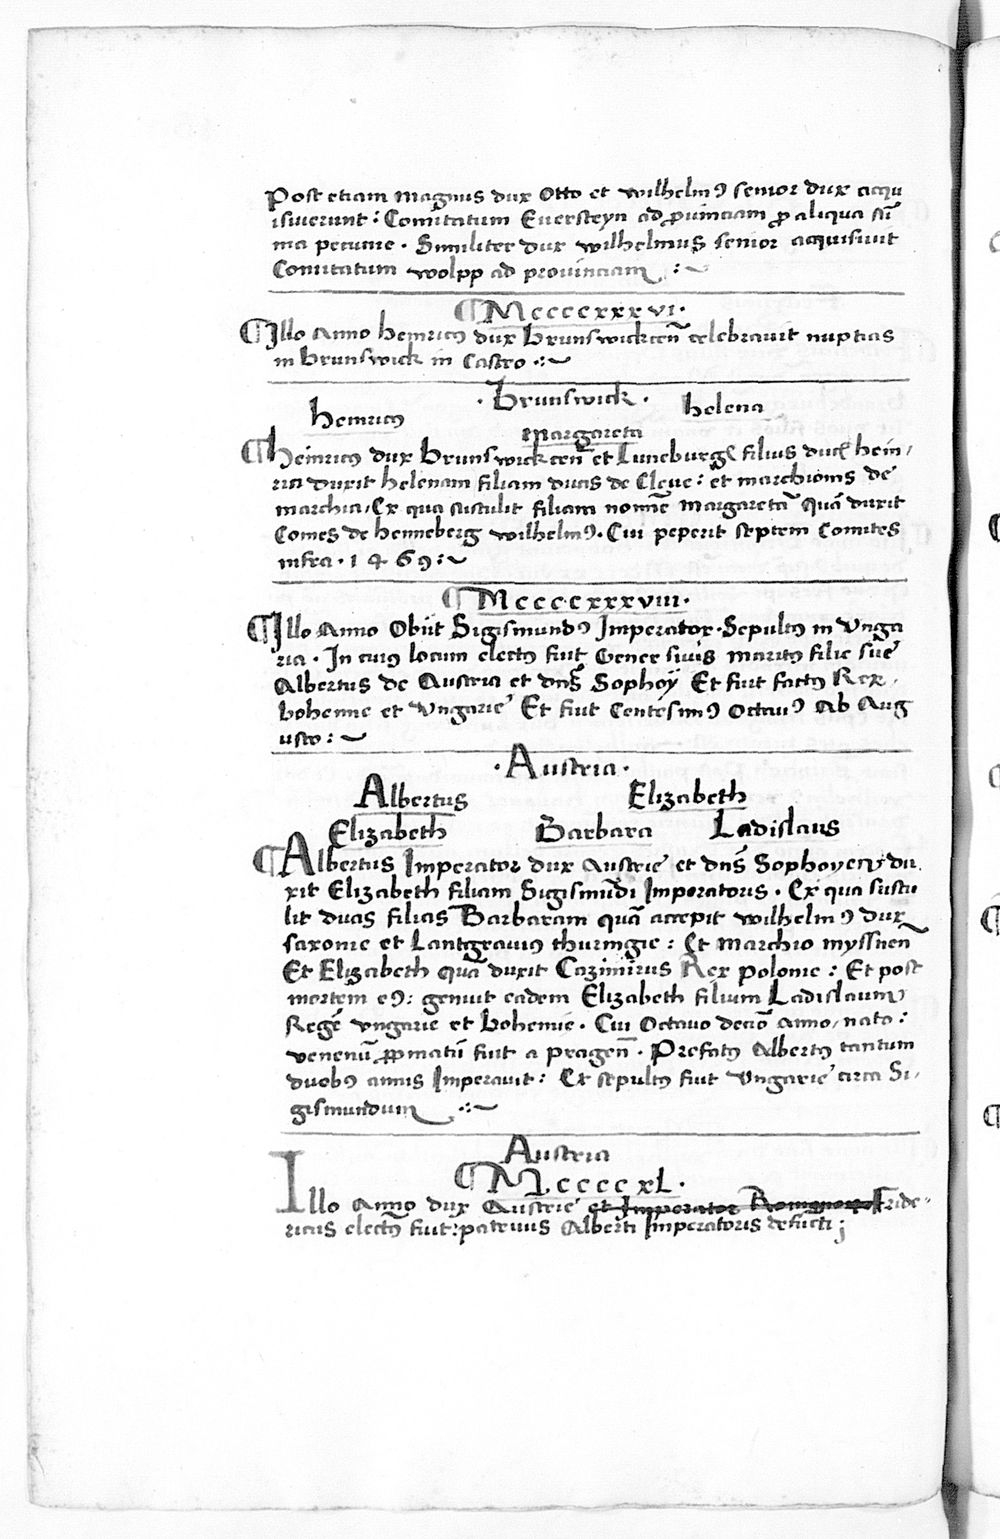 Post etiam magnus dux Otto et wilhelmꝰ senior dux acqu
isiuerunt : Comitatum Euersteyn ad ꝓuinciam ꝓ aliqua sū
ma pecunie · Similiter dux wilhelmus senior acquisiuit
Comitatum wolpp ad prouinciam :~
¶ Mccccxxxvi ·
¶ Illo Anno heinricꝰ dux brunswickceñ celebrauit nuptias
in brunswick in Castro ·:~
· Brunswick ·
heinricꝰ
helena
Margareta
¶ heinricꝰ dux brunswickceñ et Luneburgē filius ducꝭ hein/
rici duxit helenam filiam ducis de Cleue : et marchionis de
marchia · Ex qua sustulit filiam nomīe margaretā Quā duxit
Comes de henneberg wilhelmꝰ · Cui peperit septem Comites
infra · 1469 :~
¶ Mccccxxxviii ·
¶ Illo Anno Obiit Sigismundꝰ Imperator · Sepultꝰ in Unga
ria · In cuiꝰ locum electꝰ fuit Gener suus maritꝰ filie sue
Albertus de Austria et dn̄s Sophoÿ Et fuit factꝰ Rex
bohemie et Ungarie Et fuit Centesimꝰ Octauꝰ Ab Aug
usto :~
· Austria ·
Albertus
Elizabeth
Elizabeth
Barbara
Ladislaus
¶ Albertus Imperator dux Austrie et dn̄s Sophoyen du
xit Elizabeth filiam Sigismūdi Imperatoris · Ex qua sustu
lit duas filias Barbaram quā accepit wilhelmꝰ dux
saxonie et Lantgrauiꝰ thuringie : Et Marchio myssnen̄
Et Elizabeth quā duxit Cazimirus Rex polonie : Et post
mortem eꝰ : genuit eadem Elizabeth filium Ladislaum
Regē Ungarie et bohemie · Cui Octauo decīo Anno nato :
venenū ꝓpinatū fuit a pragen̄ · Prefatꝰ Albertꝰ tantum
duobꝰ annis Imperauit : Et sepultꝰ fuit Ungarie circa Si/
gismundum ·:~
Austria
¶ MccccxL ·
Illo Anno dux Austrie et Imperator Romanorum Fride-
ricus electꝰ fuit : patruus Alberti Imperatoris defūcti ;